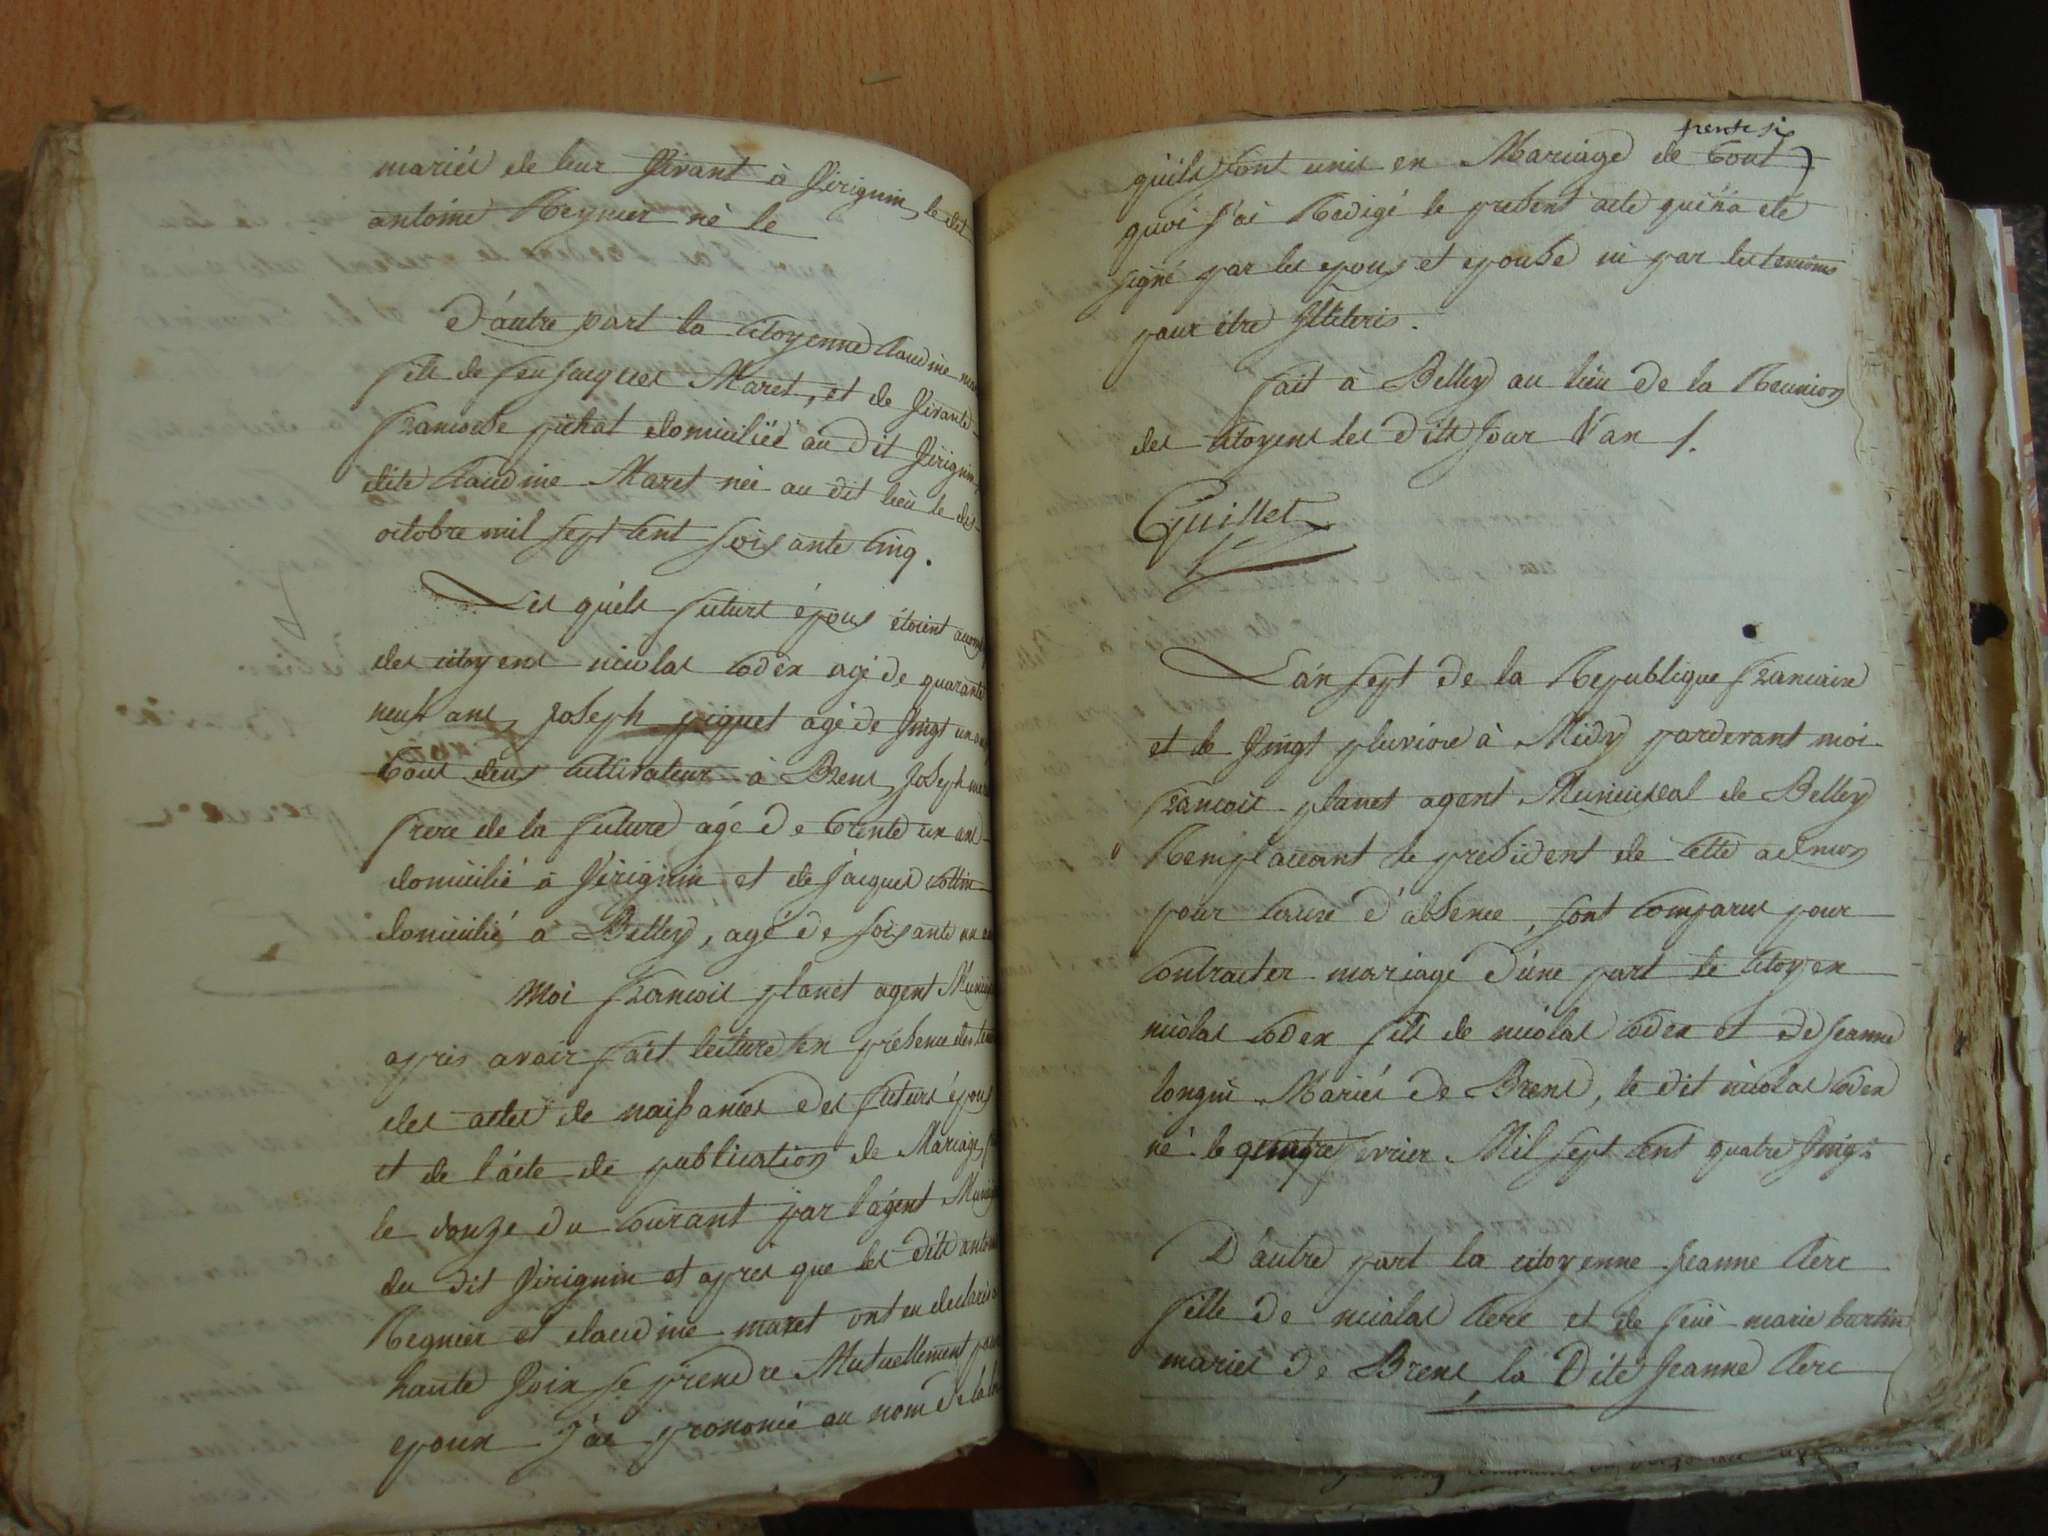 mariés de leur Vivant à Virignin, le dit
antoine Regnier né le
D'autre part la Citoyenne Claudine
fille de feu jacques Maret, et de Vivante
francoise pichat domiciliée au dit Virignin
dite Claudine Maret née au dit lieu le
octobre mil sept Cent soixante Cinq.
Les quels futurs épous étoient
des citoyens nicolas Coden agé de quarante
neuf ans, Joseph piquet agé de Vingt un ans
tous deux Cultivateurs à Brens, Joseph
frere de la future agé de trente un ans
domicilié à Virignin et de jacques Collin
domicilié à Belley, agé de soixante un
Moi francois planet agent
apris avoir fait lecture en présence des
des actes de naissances des futurs épous
et de l'acte de publication de Mariage
le douze du Courant par l'agent
du dit Virignin et apres que les dits
Regnier et claudine maret ont eu declarés à
haute Voix se prendre Mutuellement pour
epoux J'ai prononcé au nom de la loi
trente si
qu'ils sont unis en Mariage de tout
quoi j'ai Redigé le present acte qui n'a ete
signé par les epous et epouse ni par les temoins
pour etre Illiteris.
fait à Belley au lieu de la Reunion
des Citoyens les dits Jour V an /.
Guillet
L'an sept de la Republique francaise
et le Vingt pluviose à Midy pardevant moi
francois planet agent Municipal de Belley
Remplaceant le president de Cette admon
pour Cause d'absence, sont Comparus pour
Contracter mariage d'une part le Citoyen
nicolas Coden fils de nicolas Coden et de Jeanne
longin Mariés de Brens, le dit nicolas Coden
né le vrier Mil sept Cent quatre Vingt
D'autre part la citoyenne Jeanne Clerc
fille de nicolas Clerc et de feüe marie bartin
mariés de Brens, la Dite Jeanne Clerc